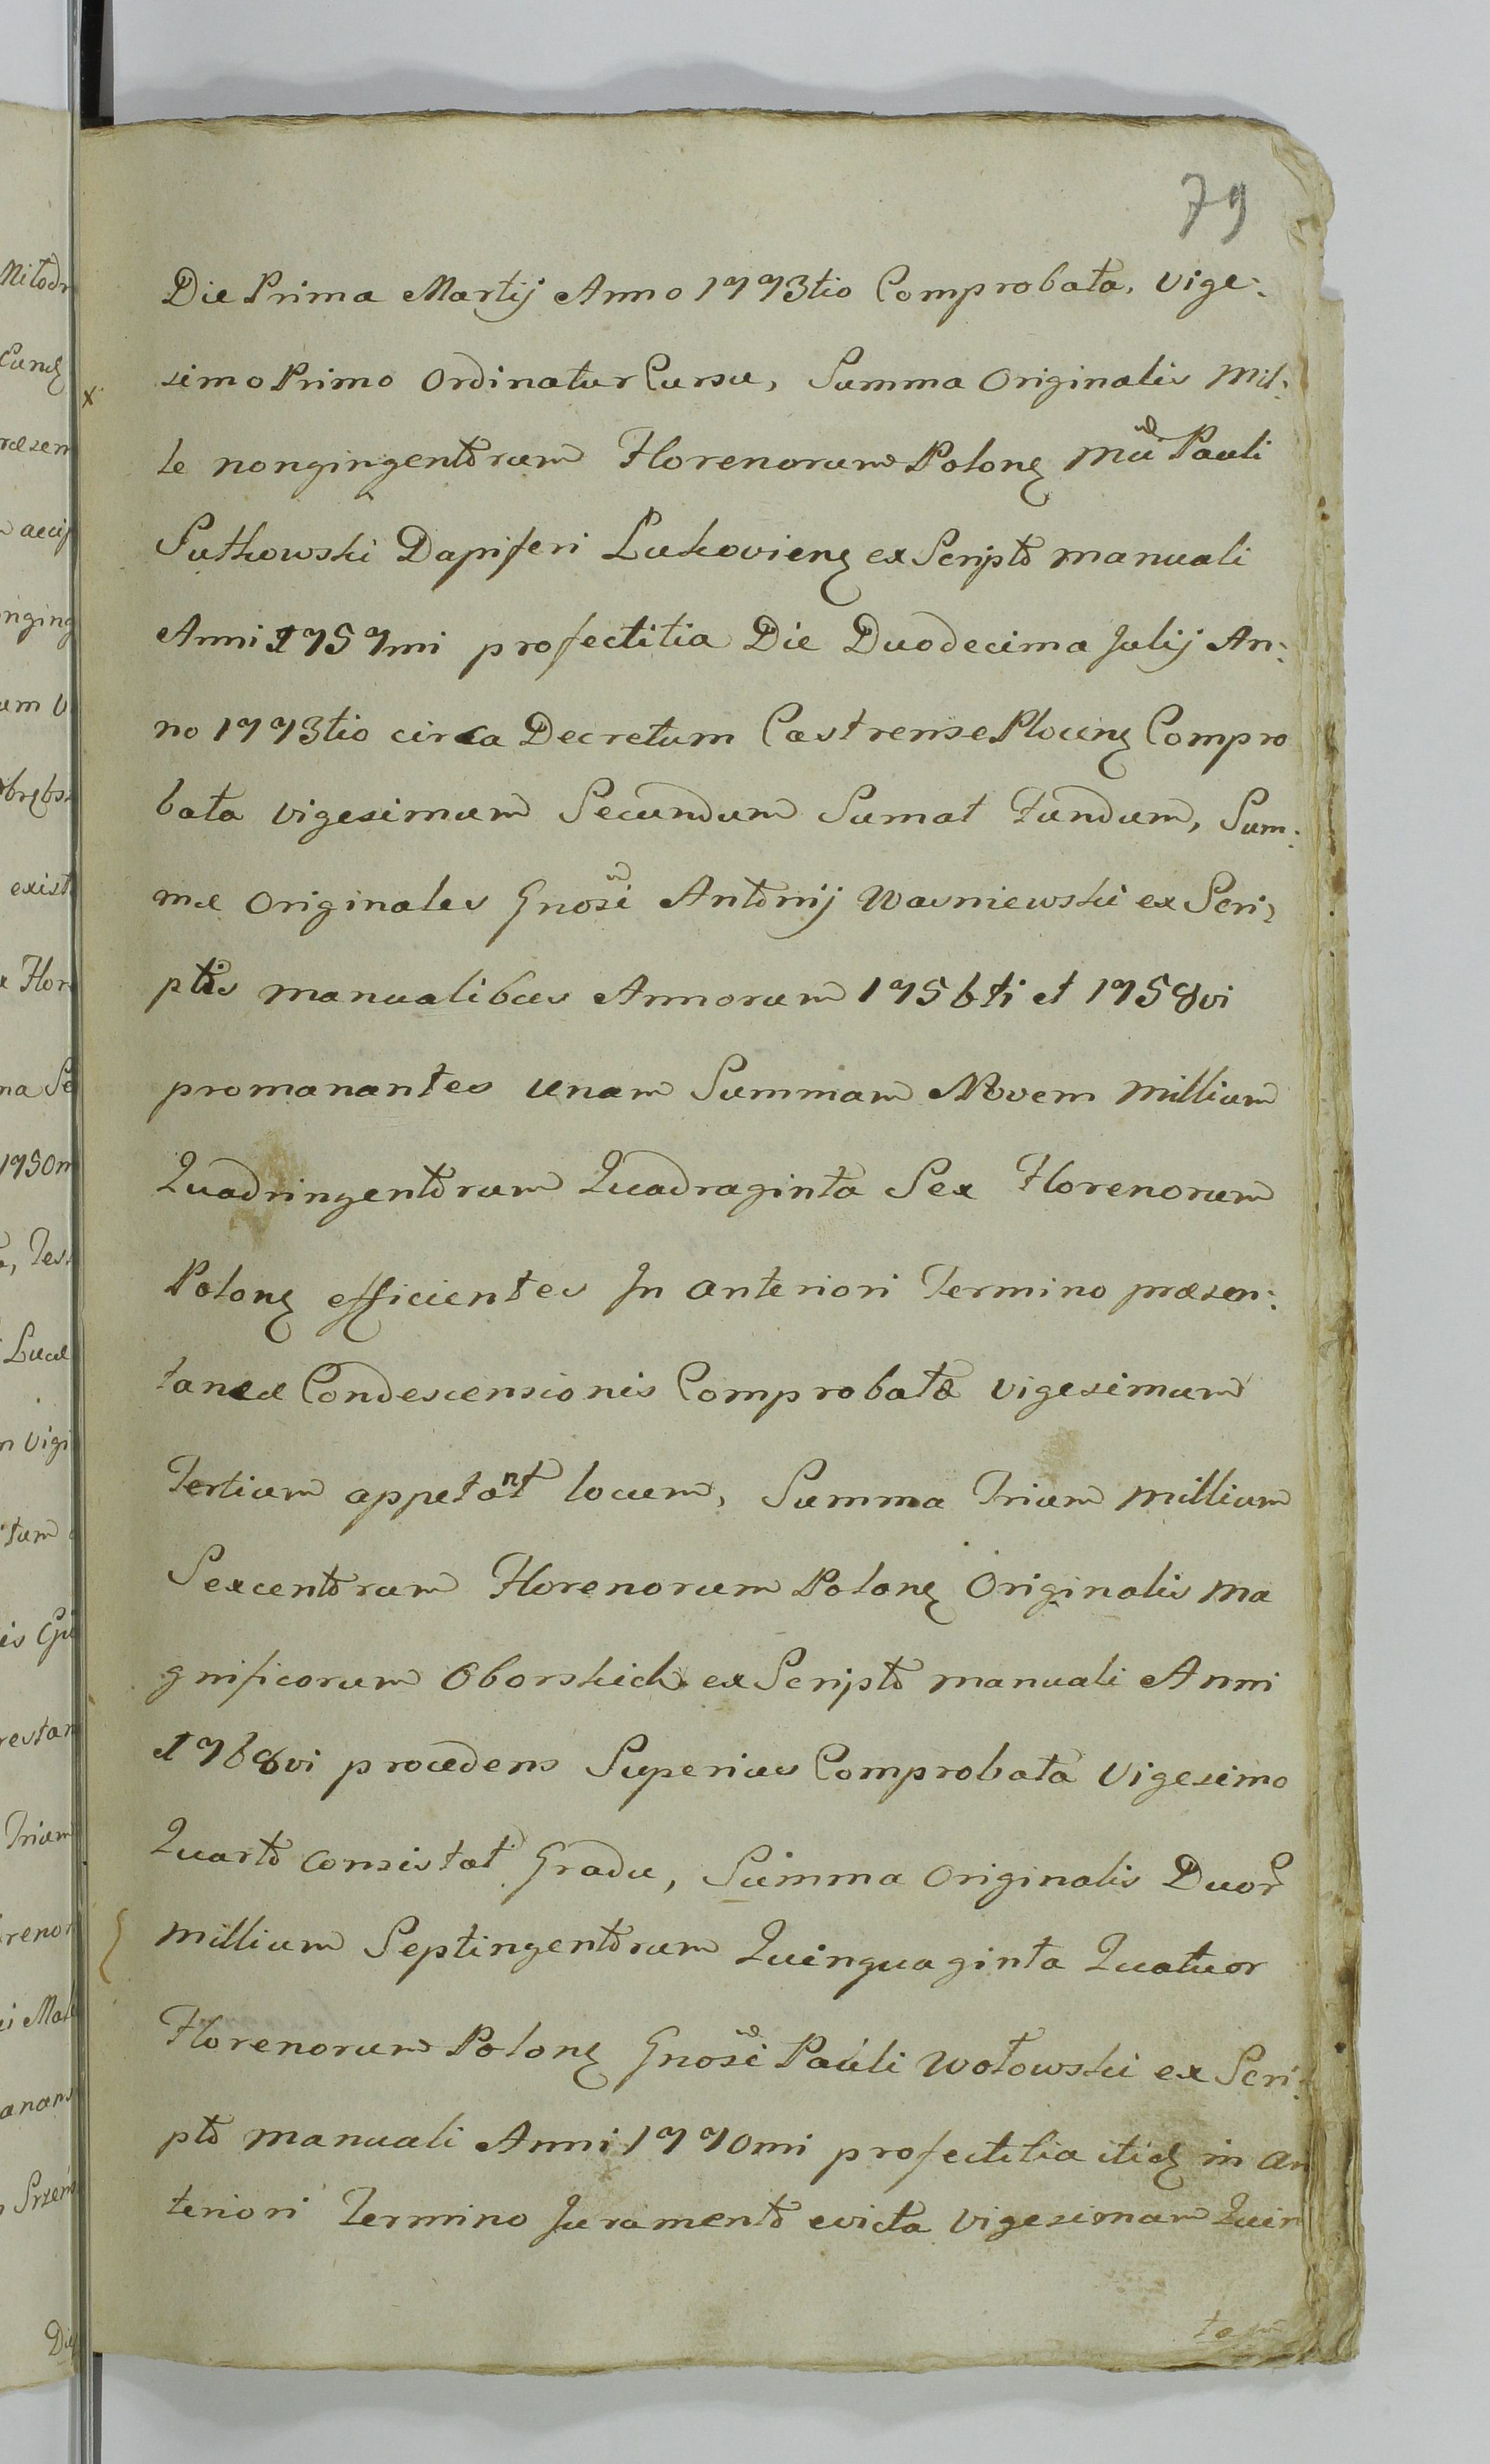 79
Die Prima Martij Anno 1773tio Comprobata, vige:
simo Primo Ordinatur Cursu, Summa Originalis Mil:
le nongingentorum Florenorum Polonę Mci Pauli
Sutkowski Dapiferi Lukovienę ex Scripto manuali
Anni 1757mi profectitia Die Duodecima Julij An:
no 1773tio circa Decretum Castrense Plocenę Compro
bata vigesimum Secundum Sumat Fundum, Sum:
mæ Originales Gnosi Antonij Wasniewski ex Scri:
ptis manualibus Annorum 1756ti et 1758vi
promanantes unam Summam Novem Millium
Quadringentorum Quadraginta Sex Florenorum
Polonę efficientes In anteriori Termino præsen:
taneæ Condescensionis Comprobatæ vigesimum
Tertium appetant locum, Summa Trium Millium
Sexcentorum Florenorum Polonę Originalis Ma
gnificorum Oborskich ex Scripto manuali Anni
1768vi procedens Superius Comprobata vigesimo
Quarto consistat Gradu, Summa Originalis Duor
Millium Septingentorum Quinquaginta Quatuor
Florenorum Polonę Gnosi Pauli Wołowski ex Scri:
pto manuali Anni 1770mi profectitia itidę in an
teriori Termino Juramento evicta vigesimam Quin